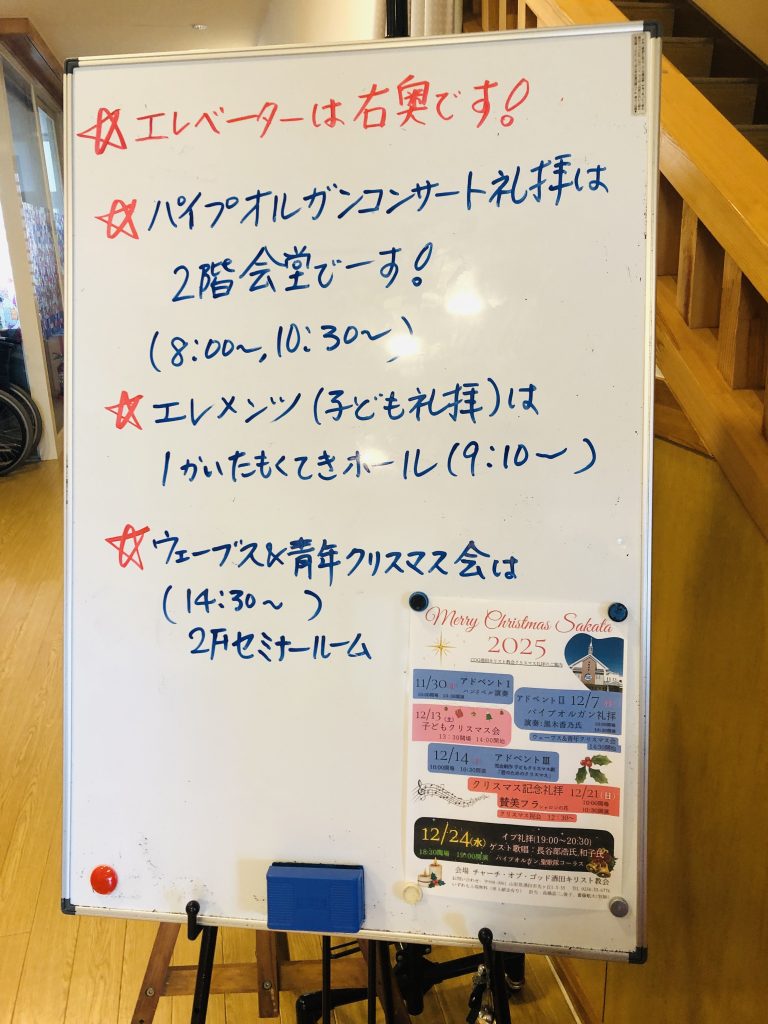 ☆エレベーターは右奥です!
☆パイプオルガンコンサート礼拝は
2階会堂でーす!
(8:00~,10:30~)
☆エレメンツ(子ども礼拝)は
1かいたもくてきホール(9:10~)
☆ウェーブス&青年クリスマス会は
(14:30~ )
2Fセミナールーム
Merry Christmas Sakata
2025
11/30 アドベントI
ハンドベル演奏
アドベントII 12/7
パイプオルガン礼拝
演奏:黒木香乃氏
ウェーブス&青年クリスマス会
14:30開始
12/13(土)
子どもクリスマス会
13:30開場 14:00開始
12/14 アドベントIII
10:00開場 10:30開演
クリスマス記念礼拝 12/21(日)
10:00開場
10:30開演
賛美フラ
クリスマス祝会 12:30~
12/24(水)
18:30開場 19:00開演
イブ礼拝(19:00~20:30)
ゲスト歌唱:長谷部浩氏,和子氏
パイプオルガン,聖歌隊コーラス
会場 チャーチ・オブ・ゴッド酒田キリスト教会